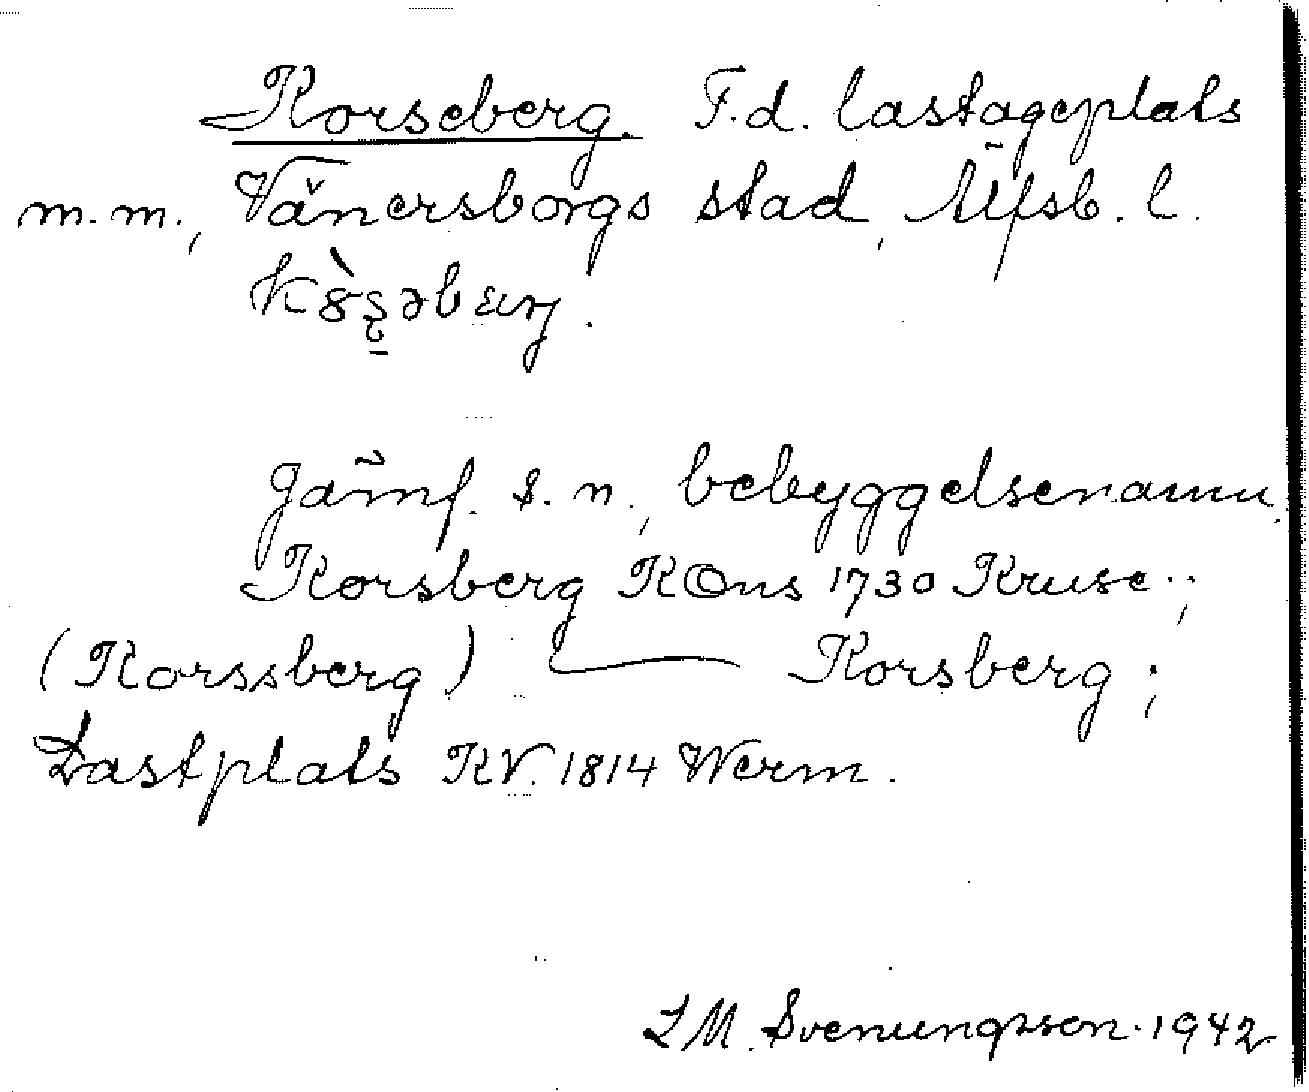 Korseberg. F.d. lastageplats
m.m., Vänersborgs stad, Älfsb. l.
Jämf. s. n., bebyggelsenamn.
Korsberg KOns 1730 Kruse.;
(Korssberg) Korsberg;
Lastplats KV. 1814 Werm.
L M. Svenungsson. 1942